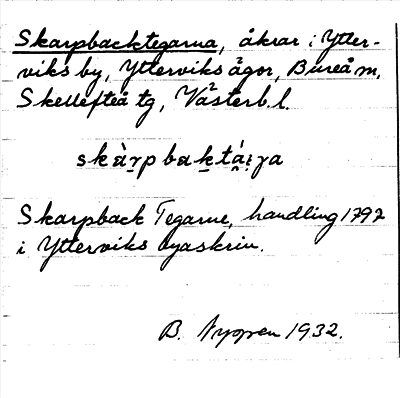 Skarpbacktegarna, åkrar i Ytter-
viks by, Ytterviks ägor, Bureå m,
Skellefteå tg, Västerb.l.
skàrp baktá̤i̭ɣa
Skarpback Tegarne, handling 1797
i Ytterviks byaskrin.
B. Nygren 1932.